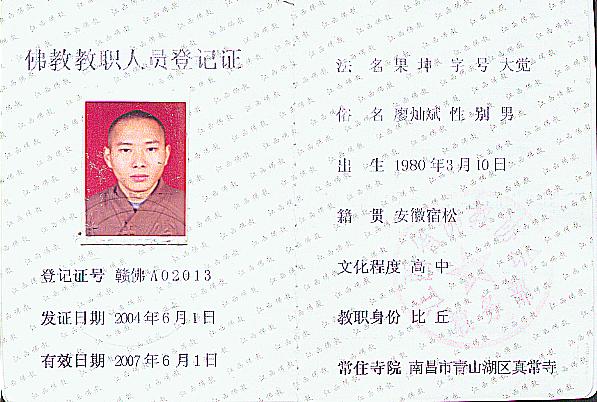 佛教教职人员登记证
登记证号 赣佛A02013
发证日期 2004年6月1日
有效日期 2007年6月1日
法 名 果 坤 字 号 大觉
俗 名 廖灿斌 性 别 男
出 生 1980年3月10日
籍 贯 安徽宿松
文化程度 高 中
教职身份 比 丘
常住寺院 南昌市青山湖区真常寺